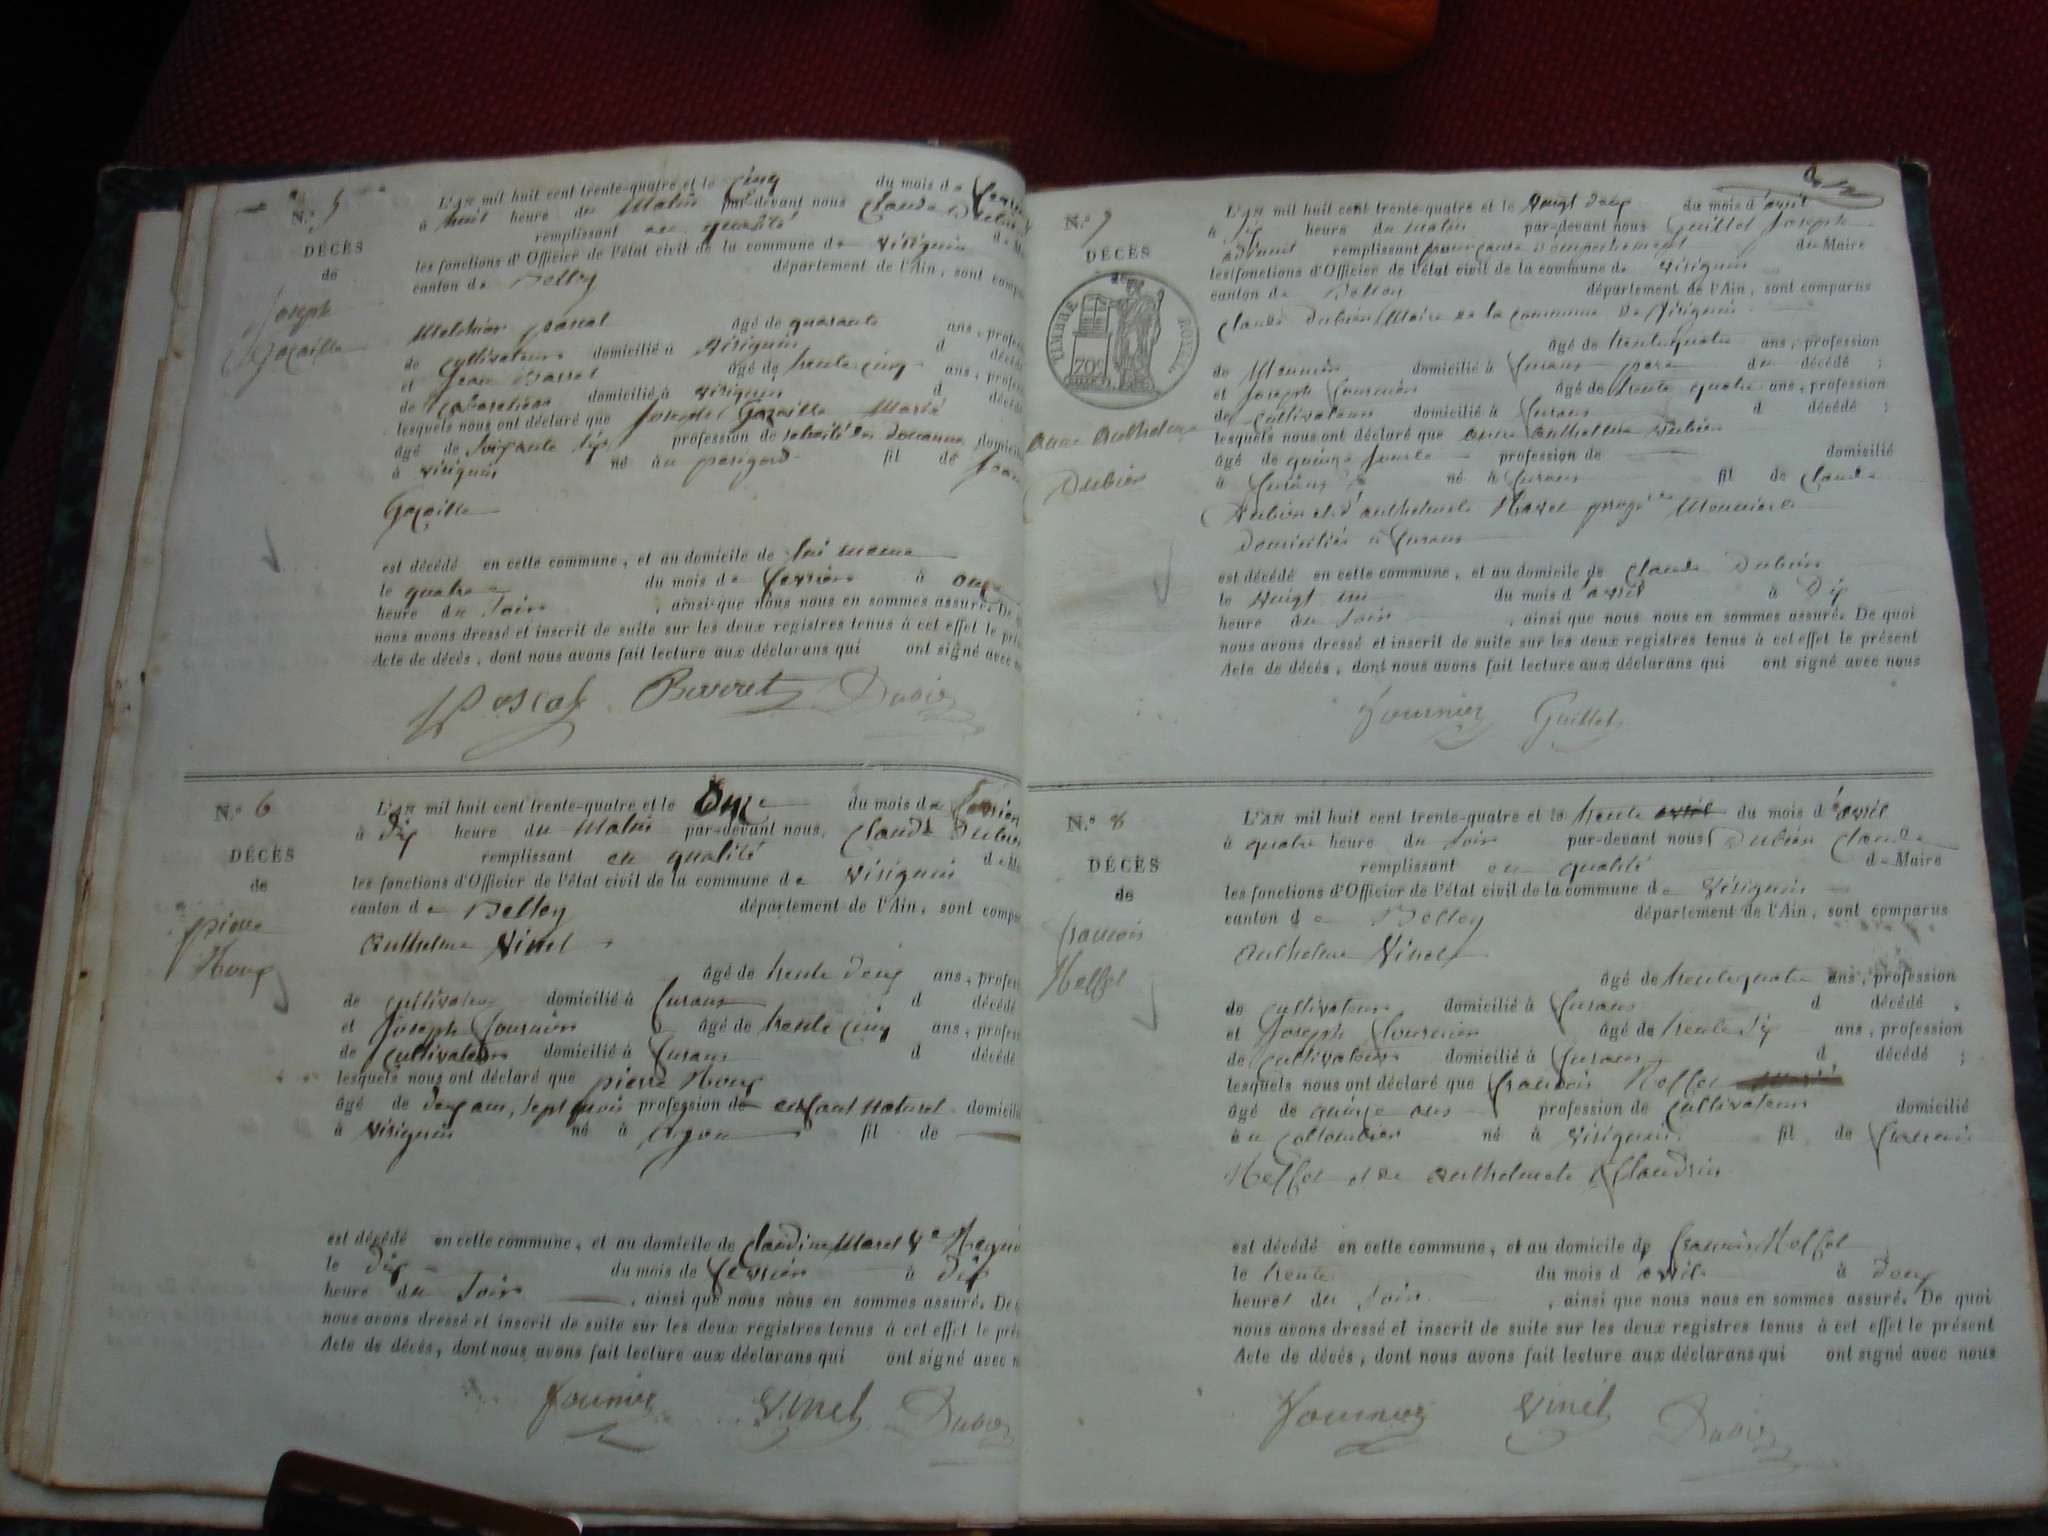 N.° 5
DÉCÈS
de
Joseph
Gazaille
L'AN mil huit cent trente-quatre et le cinq du mois de
à huit heure du Matin par-devant nous Claude Dubien
remplissant en qualité de
les fonctions d'Officier de l'état civil de la commune de Virignin
canton de Belley département de l'Ain, sont
Melchior pascal
âgé de quarante ans,
de cultivateur domicilié à Virignin d
et Jean âgé de trente cinq ans,
de domicilié à Virignin d
lesquels nous ont déclaré que Joseph Gazaille
âgé de soixante six profession de des Douanes
à Virignin né au perigord fil de
Gazaille
est décédé en cette commune, et au domicile de lui meme
le quatre du mois de fevrier à onze
heure du soir, ainsi que nous nous en sommes assuré. De
nous avons dressé et inscrit de suite sur les deux registres tenus à cet effet le
Acte de décès, dont nous avons fait lecture aux déclarans qui ont signé avec
Pascal
N.° 6
DÉCÈS
de
pierre
Roux
L'AN mil huit cent trente-quatre et le Onze du mois de fevrier
à dix heure du Matin par-devant nous, Claude Dubien
remplissant en qualité de
les fonctions d'Officier de l'état civil de la commune de Virignin
canton de Belley département de l'Ain, sont
Anthelme Vinet
âgé de trente deux ans,
de cultivateur domicilié à Lurans d décédé
et Joseph fournier âgé de trente cinq ans,
de cultivateur domicilié à Lurans d décédé
lesquels nous ont déclaré que pierre Roux
âgé de deux ans, sept mois profession de enfant Naturel
à Virignin né à Lyon fil de
est décédé en cette commune, et au domicile de Claudine Morel Ve
le dix du mois de fevrier à dix
heure du soir, ainsi que nous nous en sommes assuré. De
nous avons dressé et inscrit de suite sur les deux registres tenus à cet effet le
Acte de décès, dont nous avons fait lecture aux déclarans qui ont signé avec
fournier Vinet Dubien
N.° 7
DÉCÈS
TIMBRE ROYAL
70c
anne Anthelme
Dubien
L'AN mil huit cent trente-quatre et le vingt deux du mois d'avril
à six heure du matin par-devant nous Guillot Joseph
adjoint remplissant pour cause d'empechement du Maire
les fonctions d'Officier de l'état civil de la commune de Virignin
canton de Belley département de l'Ain, sont comparus
Claude Dubien Maire de la commune de Virignin
âgé de trente quatre ans, profession
de Meunier domicilié à Lurans pere du décédé ;
et Joseph fournier âgé de trente quatre ans, profession
de cultivateur domicilié à Lurans d décédé ;
lesquels nous ont déclaré que anne anthelme Dubien
âgé de quinze jours profession de domicilié
à Lurans né à Lurans fil de Claude
Dubien et d'anthelmete Meuniers
domiciliés à Lurans
est décédé en cette commune, et au domicile de Claude Dubien
le vingt un du mois d'avril à dix
heure du soir, ainsi que nous nous en sommes assuré. De quoi
nous avons dressé et inscrit de suite sur les deux registres tenus à cet effet le présent
Acte de décès, dont nous avons fait lecture aux déclarans qui ont signé avec nous
fournier Guillot
N.° 8
DÉCÈS
de
francois
Reffet
L'AN mil huit cent trente-quatre et le trente avril du mois d'avril
à quatre heure du soir par-devant nous Dubien Claude
remplissant en qualité de Maire
les fonctions d'Officier de l'état civil de la commune de Virignin
canton de Belley département de l'Ain, sont comparus
Anthelme Vinet
âgé de trente quatre ans, profession
de cultivateur domicilié à Lurans d décédé
et Joseph fournier âgé de trente six ans, profession
de cultivateur domicilié à Lurans d décédé ;
lesquels nous ont déclaré que francois Reffet
âgé de quinze ans profession de cultivateur domicilié
à né à Virignin fil de francois
Reffet et de anthelmete Claudrin
est décédé en cette commune, et au domicile de francois Reffet
le trente du mois d avril à deux
heures du soir, ainsi que nous nous en sommes assuré. De quoi
nous avons dressé et inscrit de suite sur les deux registres tenus à cet effet le présent
Acte de décès, dont nous avons fait lecture aux déclarans qui ont signé avec nous
fournier Vinet Dubien